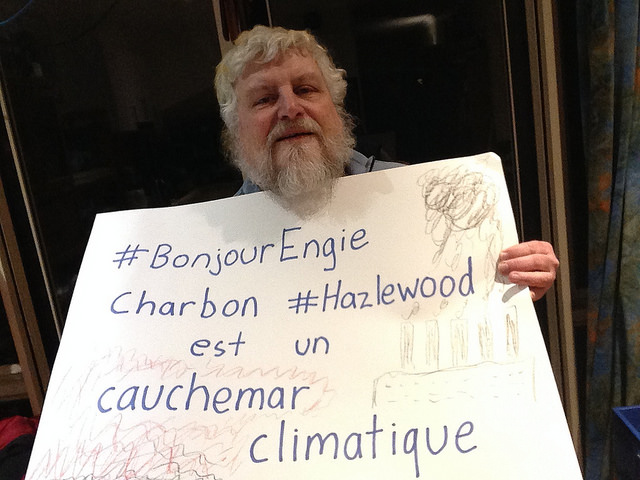 #BonjourEngie
Charbon #Hazlewood
est un
cauchemar
climatique